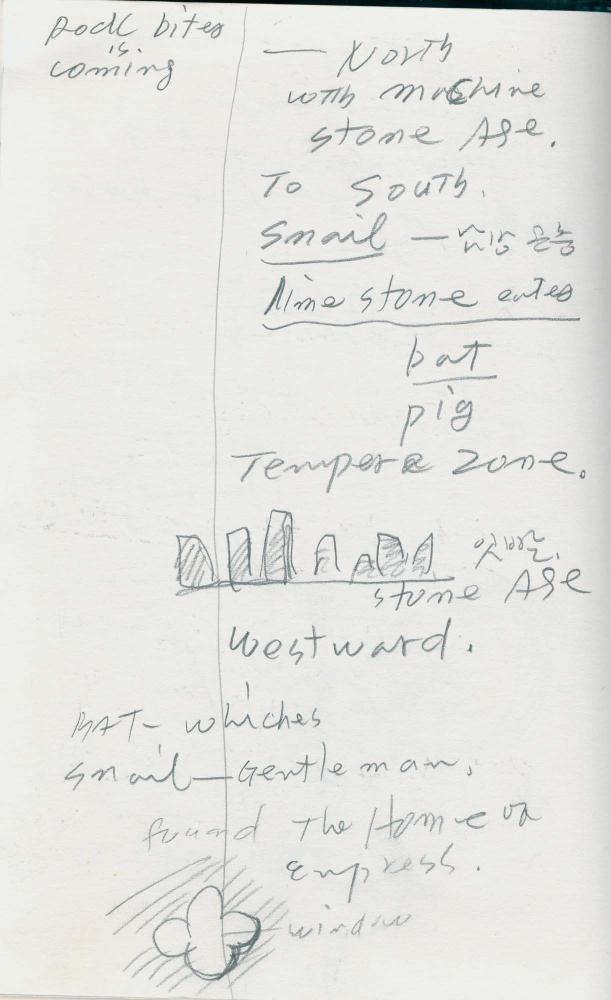 rock bites
is
coming
— North
with machine
stone Age.
To South.
Snail —
lime stone eates
bat
pig
Tempere zone.
stone Age
westward.
BAT- whiches
snail — Gentle man,
found The Home on
empress.
window